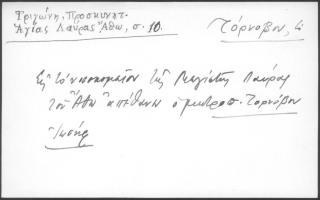 Γριγώνη. Προσκυνητ.
Ἁγίας Λαύρας Ἄθω, σ. 10.
Τόρνοβον, 4
Εἰς τὸ νοσοκομεῖον τῆς Μεγίστης Λαύρας
τοῦ Ἄθω ἀπέθανεν ὁ μητροπ. Τορνόβου
Ἰωσήφ